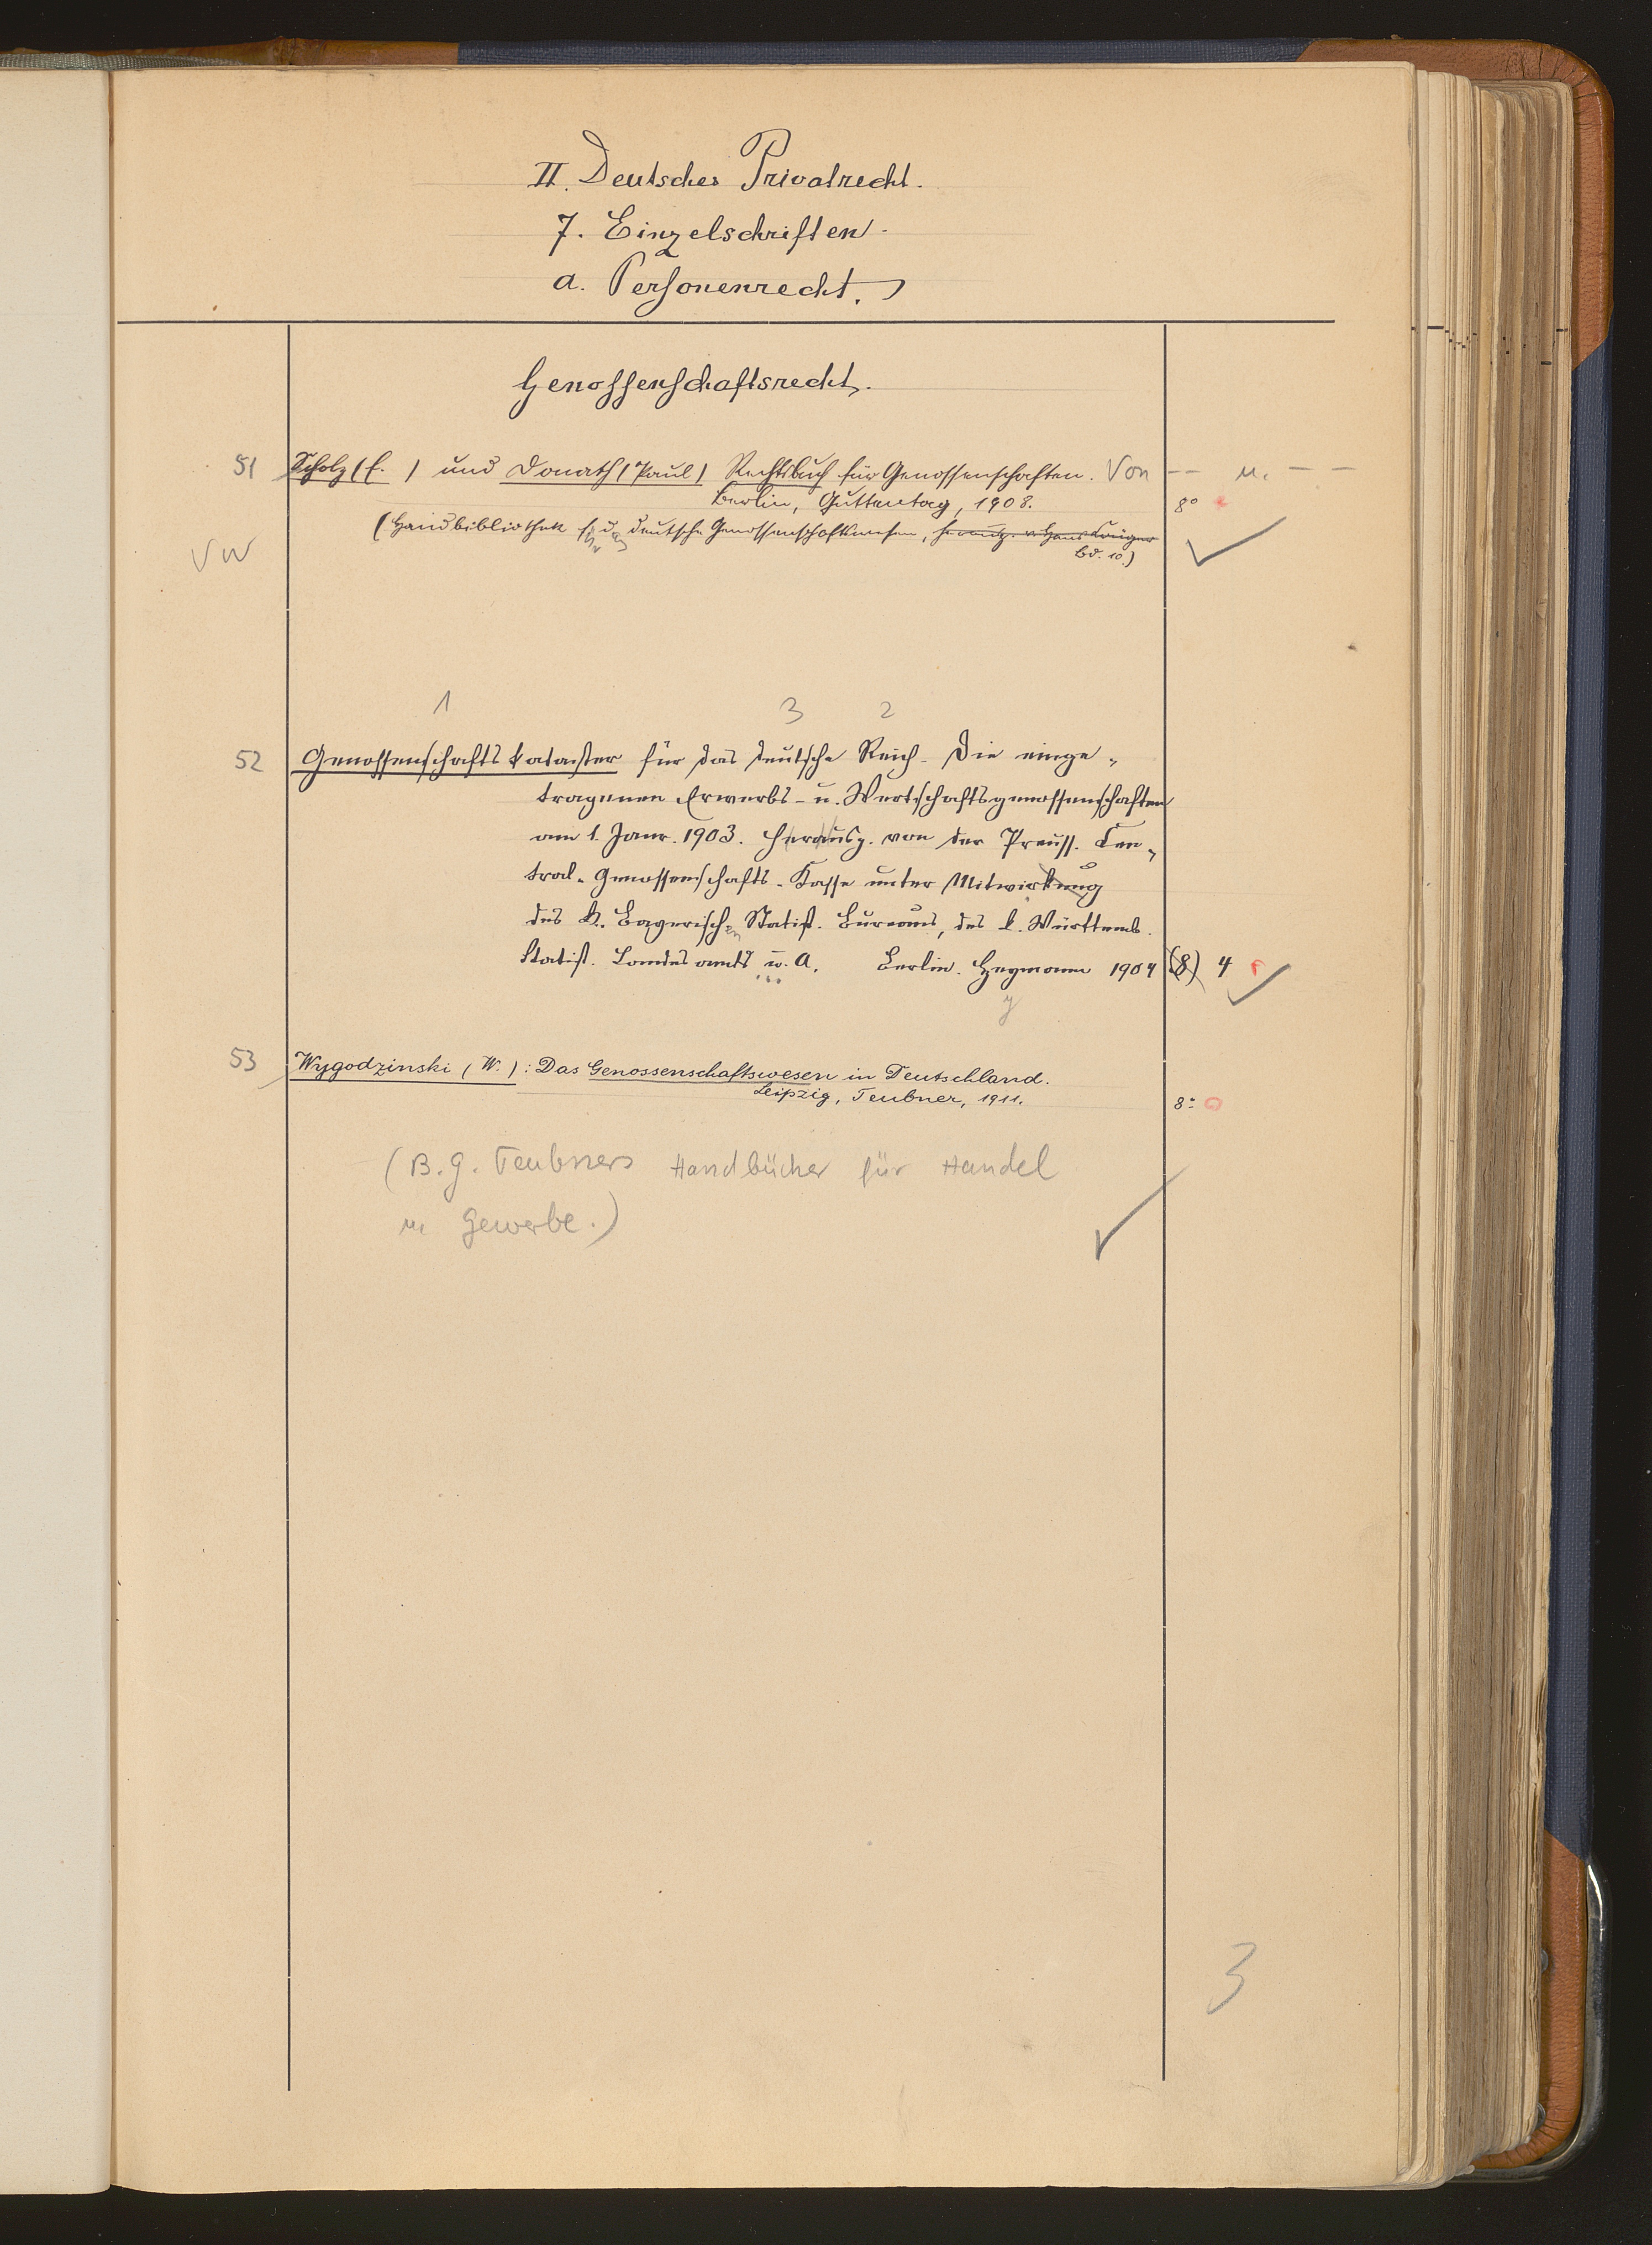 II. Deutsches Privatrecht.
7. Einzelschriften.
a. Personenrecht.
Genossenschaftsrecht.
51 Scholz (f. ) und Donath (Paul) Rechtsbuch für Genossenschaften. Von — — u. — —
Berlin, Guttentag, 1908. 8°
(Handbibliothek f. d. deutsche Genossenschaftswesen, herausg. v. Hans Crüger
VW
Bd. 10.)
1 3 2
52 Genossenschaftskataster für das deutsche Reich. Die einge-
tragenen Erwerbs- u. Wirtschaftsgenossenschaften
am 1. Janr. 1903. Herausg. von der Preuss. Cen-
tral-Genossenschafts-Kasse unter Mitwirkung
des K. Bayerischen Statist. Bureaus, des k. Württemb.
Statist. Landesamts u. A. Berlin. Heymann 1904 (8) 4
y
53 Wygodzinski (W.): Das Genossenschaftswesen in Deutschland.
Leipzig, Teubner, 1911. 8°
(B. G. Teubners Handbücher für Handel
u. Gewerbe.)
3